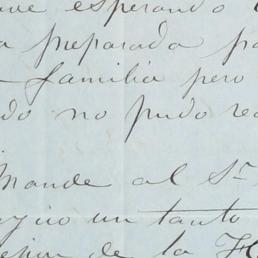 esperando
preparada pa
familia pero
do no pudo re
Mande al Sr
un tanto
de la